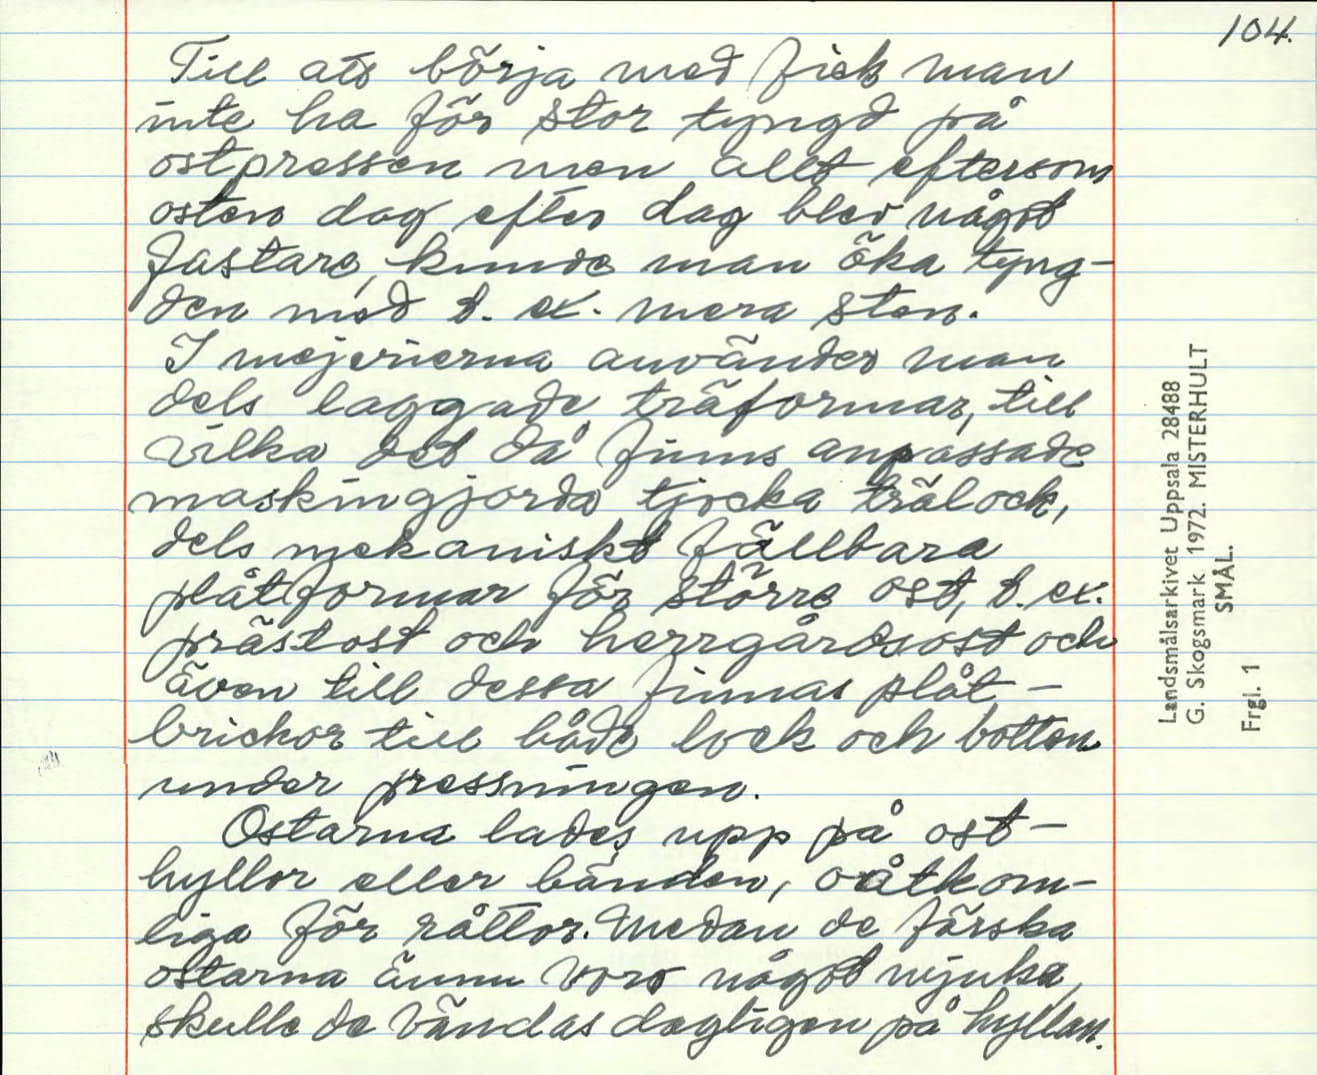 104.
Till att börja med fick man
inte ha för stor tyngd på
ostpressen men allt eftersom
osten dag efter dag blev något
fastare, kunde man öka tyng-
den med t. ex. mera sten.
I mejerierna använder man
dels laggade träformar, till
vilka det då finns anpassade
maskingjorda tjocka trälock,
dels mekaniskt fällbara
plåtformar för större ost, t. ex.
prästost och herrgårdsost och
även till dessa finnas plåt-
brickor till både lock och botten
under pressningen.
Ostarna lades upp på ost-
hyllor eller bänden, oåtkom-
liga för råttor. Medan de färska
ostarna ännu voro något mjuka,
skulle de vändas dagligen på hyllan.
Landsmålsarkivet Uppsala 28488
G. Skogsmark 1972. MISTERHULT
SMÅL.
Frgl. 1